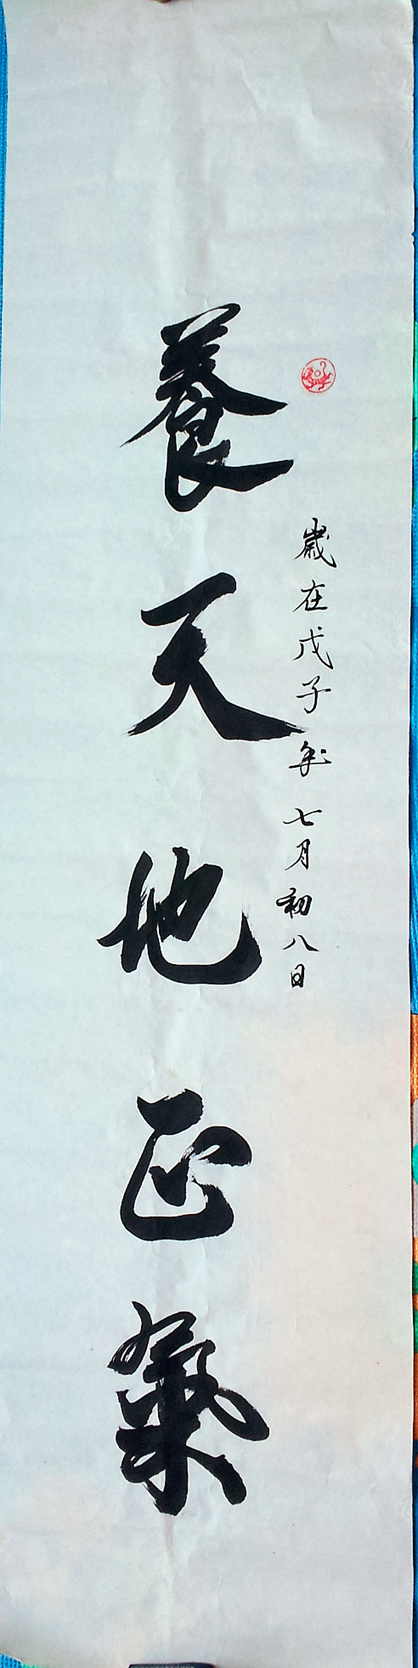 歲在戊子年七月初八日
養天地正氣